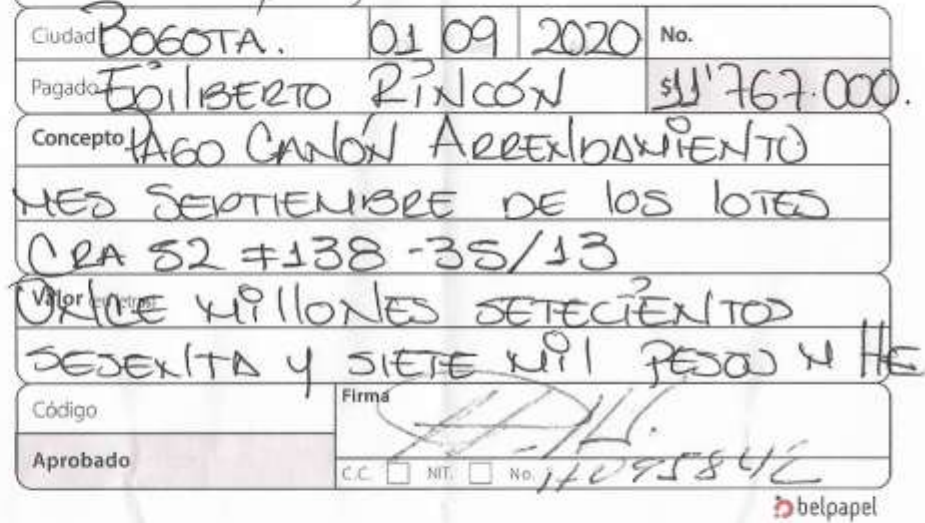 Ciudad BOGOTA. 01 09 2020 No.
Pagado EDILBERTO RINCÓN $11'767.000.
Concepto PAGO CANÓN ARRENDAMIENTO
MES SEPTIEMBRE DE los lOTES
CRA 52 #138-35/13
Valor ONCE MillONES SETECIENTOS
SESENTA Y SIETE Mil PESOS M
Código
Firma
Aprobado
C.C. NIT. No.
belpapel